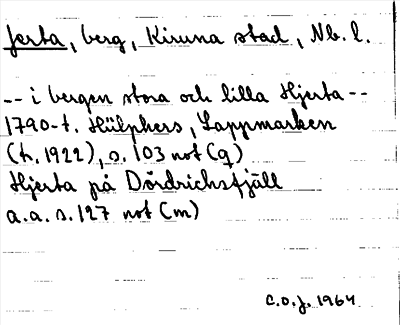 Jerta, berg, Kiruna stad, Nb. l.
-- i bergen stora och lilla Hjerta --
1790-t. Hülphers, Lappmarken
(tr. 1922), s. 103 not (q)
Hjerta på Dördrichsfjäll
a.a. s. 127 not (m)
C.O.J. 1964